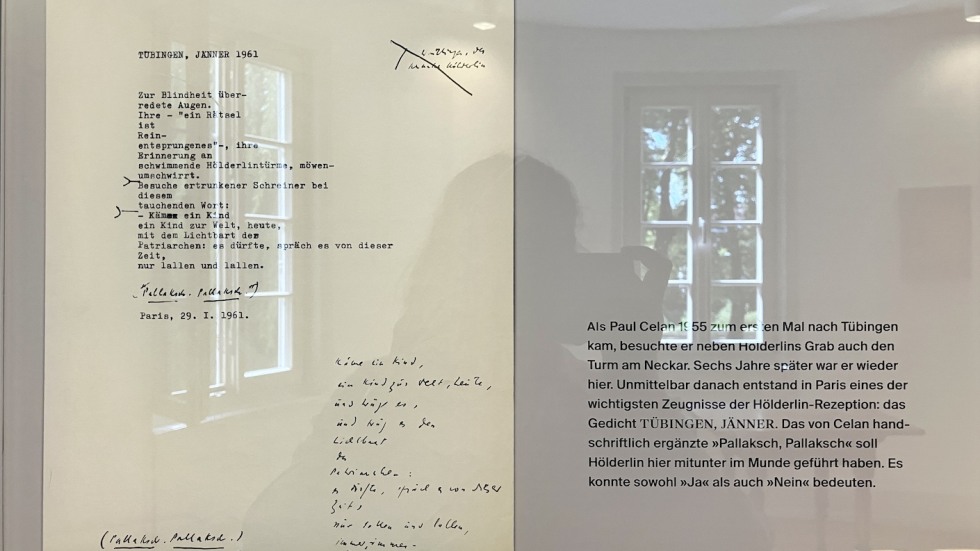 TÜBINGEN, JÄNNER 1961
Zur Blindheit über-
redete Augen.
Ihre - "ein Rätsel
ist
Rein-
entsprungenes"-, ihre
Erinnerung an
schwimmende Hölderlintürme, möwen-
umschwirrt.
Besuche ertrunkener Schreiner bei
diesem
tauchenden Wort:
- Käme ein Kind
ein Kind zur Welt, heute,
mit dem Lichtbart der
Patriarchen: es dürfte, spräch es von dieser
Zeit,
nur lallen und lallen.
(Pallaksch. Pallaksch.)
Paris, 29. I. 1961.
Käme ein Kind,
ein Kind zur Welt, heute,
und trüg es,
und trüg es den
Lichtbart
der
Patriarchen:
es dürfte, spräch es von dieser
Zeit,
nur lallen und lallen,
immer, immer-
(Pallaksch. Pallaksch.)
Als Paul Celan 1955 zum ersten Mal nach Tübingen
kam, besuchte er neben Hölderlins Grab auch den
Turm am Neckar. Sechs Jahre später war er wieder
hier. Unmittelbar danach entstand in Paris eines der
wichtigsten Zeugnisse der Hölderlin-Rezeption: das
Gedicht TÜBINGEN, JÄNNER. Das von Celan hand-
schriftlich ergänzte »Pallaksch, Pallaksch« soll
Hölderlin hier mitunter im Munde geführt haben. Es
konnte sowohl »Ja« als auch »Nein« bedeuten.